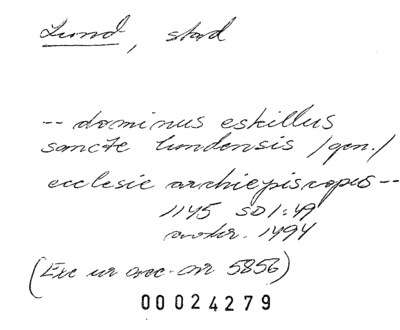 Lund, stad
-- dominus eskillus
sancte lundensis /gen./
ecclesie archiepiscopus --
1145 SD 1:49
avskr. 1494
(Exc ur acc. nr 5856)
00024279